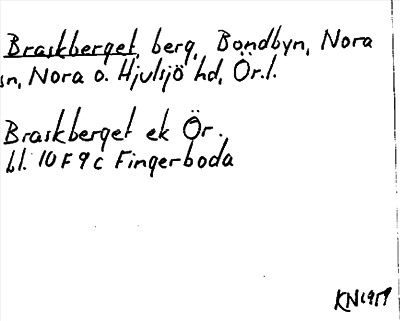 Braskberget, berg, Bondbyn, Nora
sn, Nora o. Hjulsjö hd, Ör.l.
Braskberget ek Ör.
bl. 10 F 9 c Fingerboda